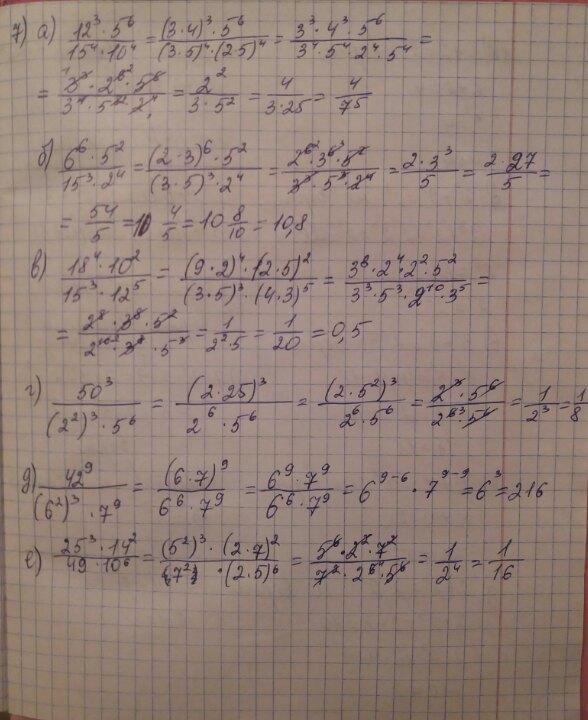 7) а) 12³·5⁶/15⁴·10⁴ = (3·4)³·5⁶/(3·5)⁴·(2·5)⁴ = 3³·4³·5⁶/3⁴·5⁴·2⁴·5⁴ =
= 3³·2⁶·5⁶/3⁴·5⁸·2⁴ = 2²/3·5² = 4/3·25 = 4/75
б) 6⁶·5²/15³·2⁴ = (2·3)⁶·5²/(3·5)³·2⁴ = 2⁶·3⁶·5²/3³·5³·2⁴ = 2·3³/5 = 2·27/5 =
= 54/5 = 10 4/5 = 10 8/10 = 10,8
в) 18⁴·10²/15³·12⁵ = (9·2)⁴·(2·5)²/(3·5)³·(4·3)⁵ = 3⁸·2⁴·2²·5²/3³·5³·2¹⁰·3⁵ =
= 2⁸·3⁸·5²/2¹⁰·3⁸·5³ = 1/2²·5 = 1/20 = 0,5
г) 50³/(2²)³·5⁶ = (2·25)³/2⁶·5⁶ = (2·5²)³/2⁶·5⁶ = 2³·5⁶/2⁶·5⁶ = 1/2³ = 1/8
д) 42⁹/(6²)³·7⁹ = (6·7)⁹/6⁶·7⁹ = 6⁹·7⁹/6⁶·7⁹ = 6⁹⁻⁶·7⁹⁻⁹ = 6³ = 216
е) 25³·14²/49·10⁶ = (5²)³·(2·7)²/(7²)·(2·5)⁶ = 5⁶·2²·7²/7²·2⁶·5⁶ = 1/2⁴ = 1/16